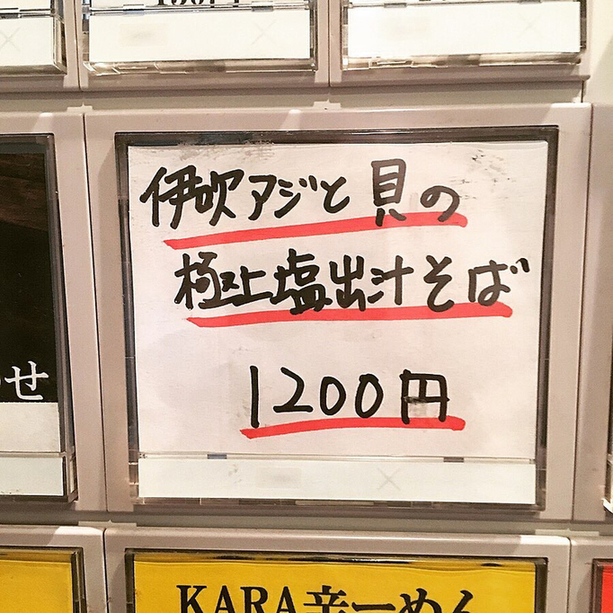 伊吹アジと貝の
極上塩出汁そば
1200円
せ
KARA辛一めん